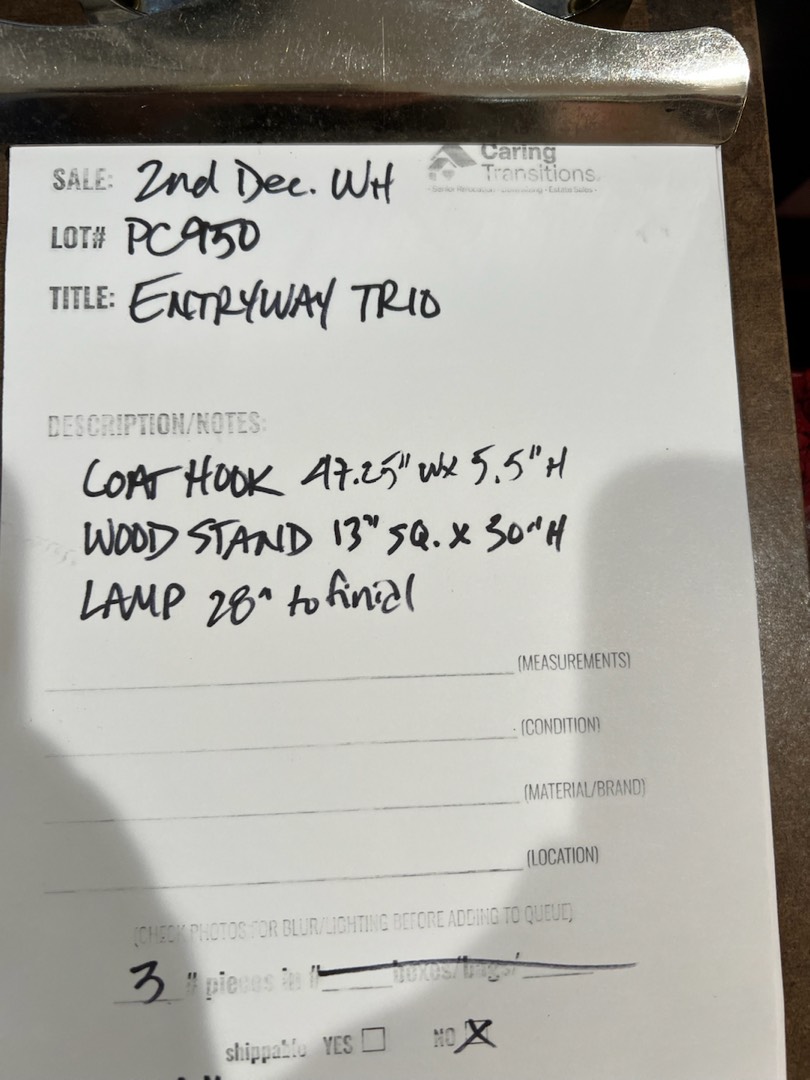 Caring
Transitions
SALE: 2nd Dec. WH
LOT# PC950
TITLE: ENTRYWAY TRIO
DESCRIPTION/NOTES:
COAT HOOK 47.25" W x 5.5" H
WOOD STAND 13" SQ. x 30" H
LAMP 28" to finial
(MEASUREMENTS)
(CONDITION)
(MATERIAL/BRAND)
(LOCATION)
(CHECK PHOTOS FOR BLUR/LIGHTING BEFORE ADDING TO QUEUE)
3 # pieces in # boxes/bags/
shippable YES NO X